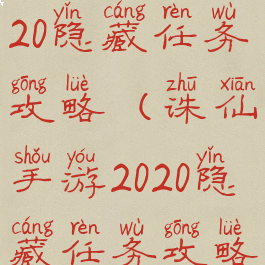 yǐn cáng rèn wù
20隐藏任务
gōng lüè zhū xiān
攻略（诛仙
shǒu yóu yǐn
手游2020隐
cáng rèn wù gōng lüè
藏任务攻略